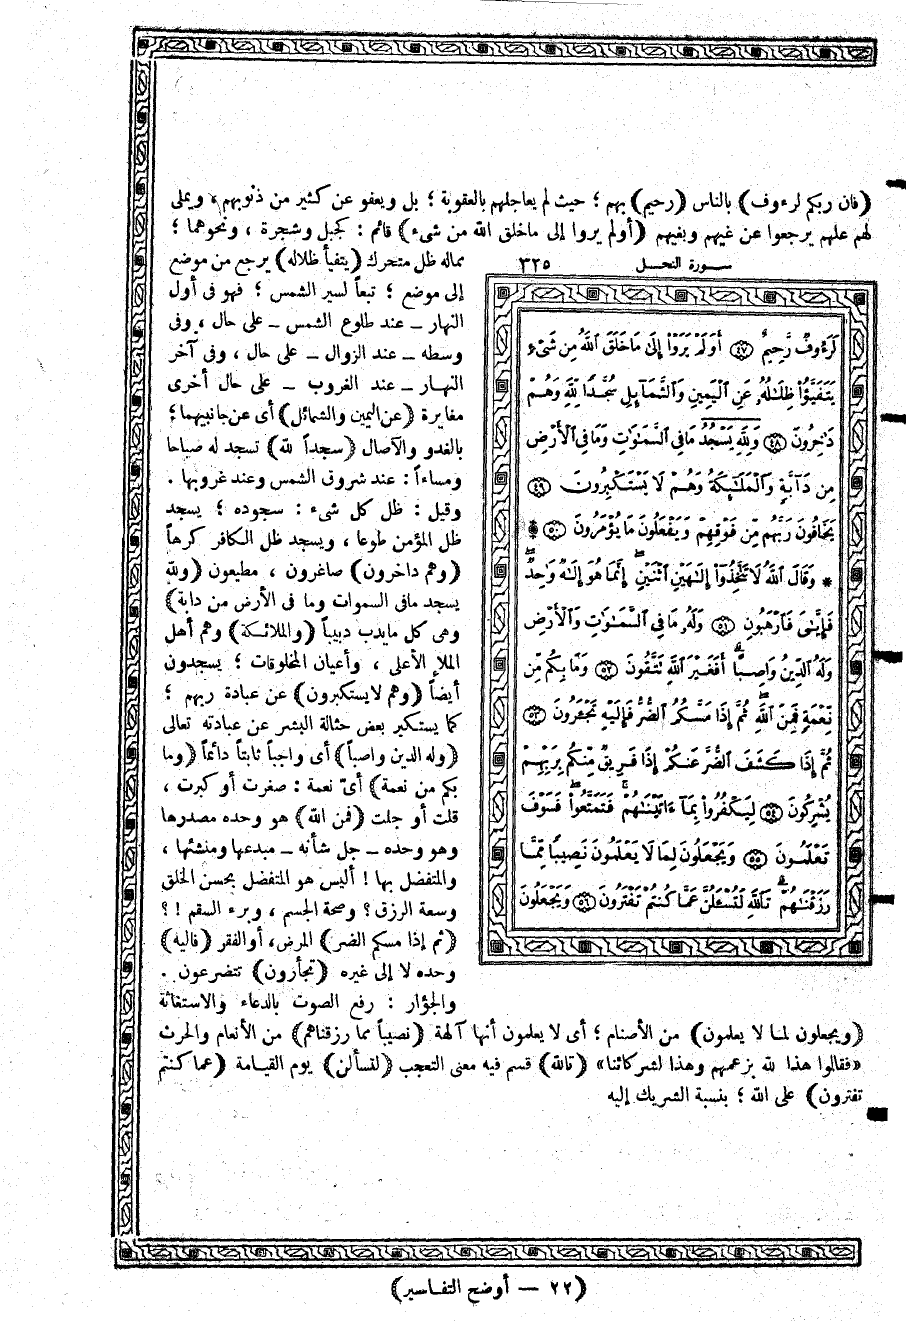 (فان ربكم لرءوف) بالناس (رحيم) بهم ؛ حيث لم يعاجلهم بالعقوبة ؛ بل ويعفو عن كثير من ذنوبهم، ويملى
لهم علهم يرجعوا عن غيهم وبغيهم (أولم يروا إلى ماخلق الله من شىء) قائم : كجبل وشجرة ، ونحوهما ؛
مماله ظل متحرك (يتفيأ ظلاله) يرجع من موضع
إلى موضع ؛ تبعاً لسير الشمس ؛ فهو فى أول
النهار ــ عند طلوع الشمس ــ على حال ، وفى
وسطه ــ عند الزوال ــ على حال ، وفى آخر
النهار ــ عند الغروب ــ على حال أخرى
مغايرة (عن اليمين والشمائل) أى عن جانبيهما ؛
بالغدو والآصال (سجداً لله) تسجد له صباحا
ومساءاً : عند شروق الشمس وعند غروبها .
وقيل : ظل كل شىء : سجوده ؛ يسجد
ظل المؤمن طوعا ، ويسجد ظل الكافر كرها
(وهم داخرون) صاغرون ، مطيعون (ولله
يسجد مافى السموات وما فى الأرض من دابة)
وهى كل مايدب دبيباً (والملائكة) وهم أهل
الملإ الأعلى ، وأعيان المخلوقات ؛ يسجدون
أيضاً (وهم لايستكبرون) عن عبادة ربهم ؛
كما يستكبر بعض حثالة البشر عن عبادته تعالى
(وله الدين واصباً) أى واجباً ثابتاً دائماً (وما
بكم من نعمة) أىّ نعمة : صغرت أو كبرت ،
قلت أو جلت (فمن الله) هو وحده مصدرها
وهو وحده ــ جل شأنه ــ مبدعها ومنشئها ،
والمتفضل بها ! أليس هو المتفضل بحسن الخلق
وسعة الرزق ؟ وصحة الجسم ، وبرء السقم !؟
(ثم إذا مسكم الضر) المرض، أو الفقر (فاليه)
وحده لا إلى غيره (تجأرون) تتضرعون .
والجؤار : رفع الصوت بالدعاء والاستغاثة
سورة النحل ٣٢٥
لَرَءُوفٌ رَّحِيمٌ ﴿٤٧﴾ أَوَلَمْ يَرَوْاْ إِلَىٰ مَا خَلَقَ ٱللَّهُ مِن شَىْءٍ
يَتَفَيَّؤُاْ ظِلَـٰلُهُۥ عَنِ ٱلْيَمِينِ وَٱلشَّمَآئِلِ سُجَّدًا لِّلَّهِ وَهُمْ
دَٰخِرُونَ ﴿٤٨﴾ وَلِلَّهِ يَسْجُدُ مَا فِى ٱلسَّمَـٰوَٰتِ وَمَا فِى ٱلْأَرْضِ
مِن دَآبَّةٍ وَٱلْمَلَـٰٓئِكَةُ وَهُمْ لَا يَسْتَكْبِرُونَ ﴿٤٩﴾
يَخَافُونَ رَبَّهُم مِّن فَوْقِهِمْ وَيَفْعَلُونَ مَا يُؤْمَرُونَ ﴿٥٠﴾ ۩
* وَقَالَ ٱللَّهُ لَا تَتَّخِذُوٓاْ إِلَـٰهَيْنِ ٱثْنَيْنِ ۖ إِنَّمَا هُوَ إِلَـٰهٌ وَٰحِدٌ ۖ
فَإِيَّـٰىَ فَٱرْهَبُونِ ﴿٥١﴾ وَلَهُۥ مَا فِى ٱلسَّمَـٰوَٰتِ وَٱلْأَرْضِ
وَلَهُ ٱلدِّينُ وَاصِبًا ۚ أَفَغَيْرَ ٱللَّهِ تَتَّقُونَ ﴿٥٢﴾ وَمَا بِكُم مِّن
نِّعْمَةٍ فَمِنَ ٱللَّهِ ۖ ثُمَّ إِذَا مَسَّكُمُ ٱلضُّرُّ فَإِلَيْهِ تَجْـَٔرُونَ ﴿٥٣﴾
ثُمَّ إِذَا كَشَفَ ٱلضُّرَّ عَنكُمْ إِذَا فَرِيقٌ مِّنكُم بِرَبِّهِمْ
يُشْرِكُونَ ﴿٥٤﴾ لِيَكْفُرُواْ بِمَآ ءَاتَيْنَـٰهُمْ ۚ فَتَمَتَّعُواْ ۖ فَسَوْفَ
تَعْلَمُونَ ﴿٥٥﴾ وَيَجْعَلُونَ لِمَا لَا يَعْلَمُونَ نَصِيبًا مِّمَّا
رَزَقْنَـٰهُمْ ۗ تَٱللَّهِ لَتُسْـَٔلُنَّ عَمَّا كُنتُمْ تَفْتَرُونَ ﴿٥٦﴾ وَيَجْعَلُونَ
(ويجعلون لما لا يعلمون) من الأصنام ؛ أى لا يعلمون أنها آلهة (نصيباً مما رزقناهم) من الأنعام والحرث
«فقالوا هذا لله بزعمهم وهذا لشركائنا» (تالله) قسم فيه معنى التعجب (لتسألن) يوم القيامة (عما كنتم
تفترون) على الله ؛ بنسبة الشريك إليه
(٢٢ — أوضح التفاسير)